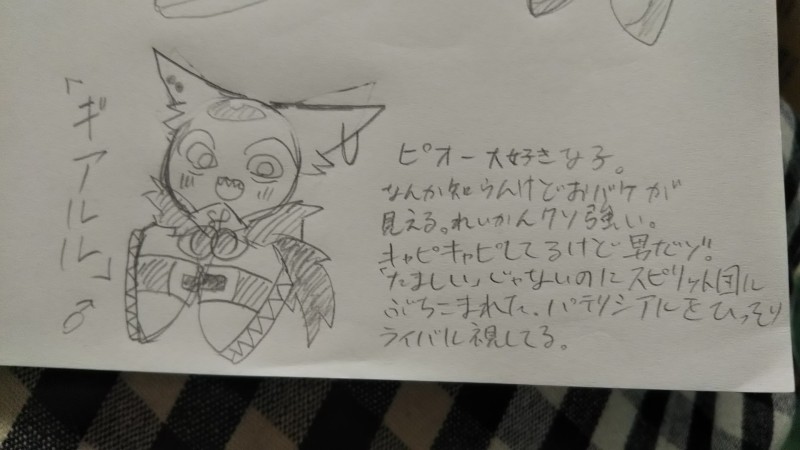 「ギアルル」♂
ピオー大好きな子。
なんか知らんけどおバケが
見える。れいかんクソ強い。
キャピキャピしてるけど男だゾ!
「たましい」じゃないのにスピリット団に
ぶちこまれた。パテリシアルをひっそり
ライバル視してる。